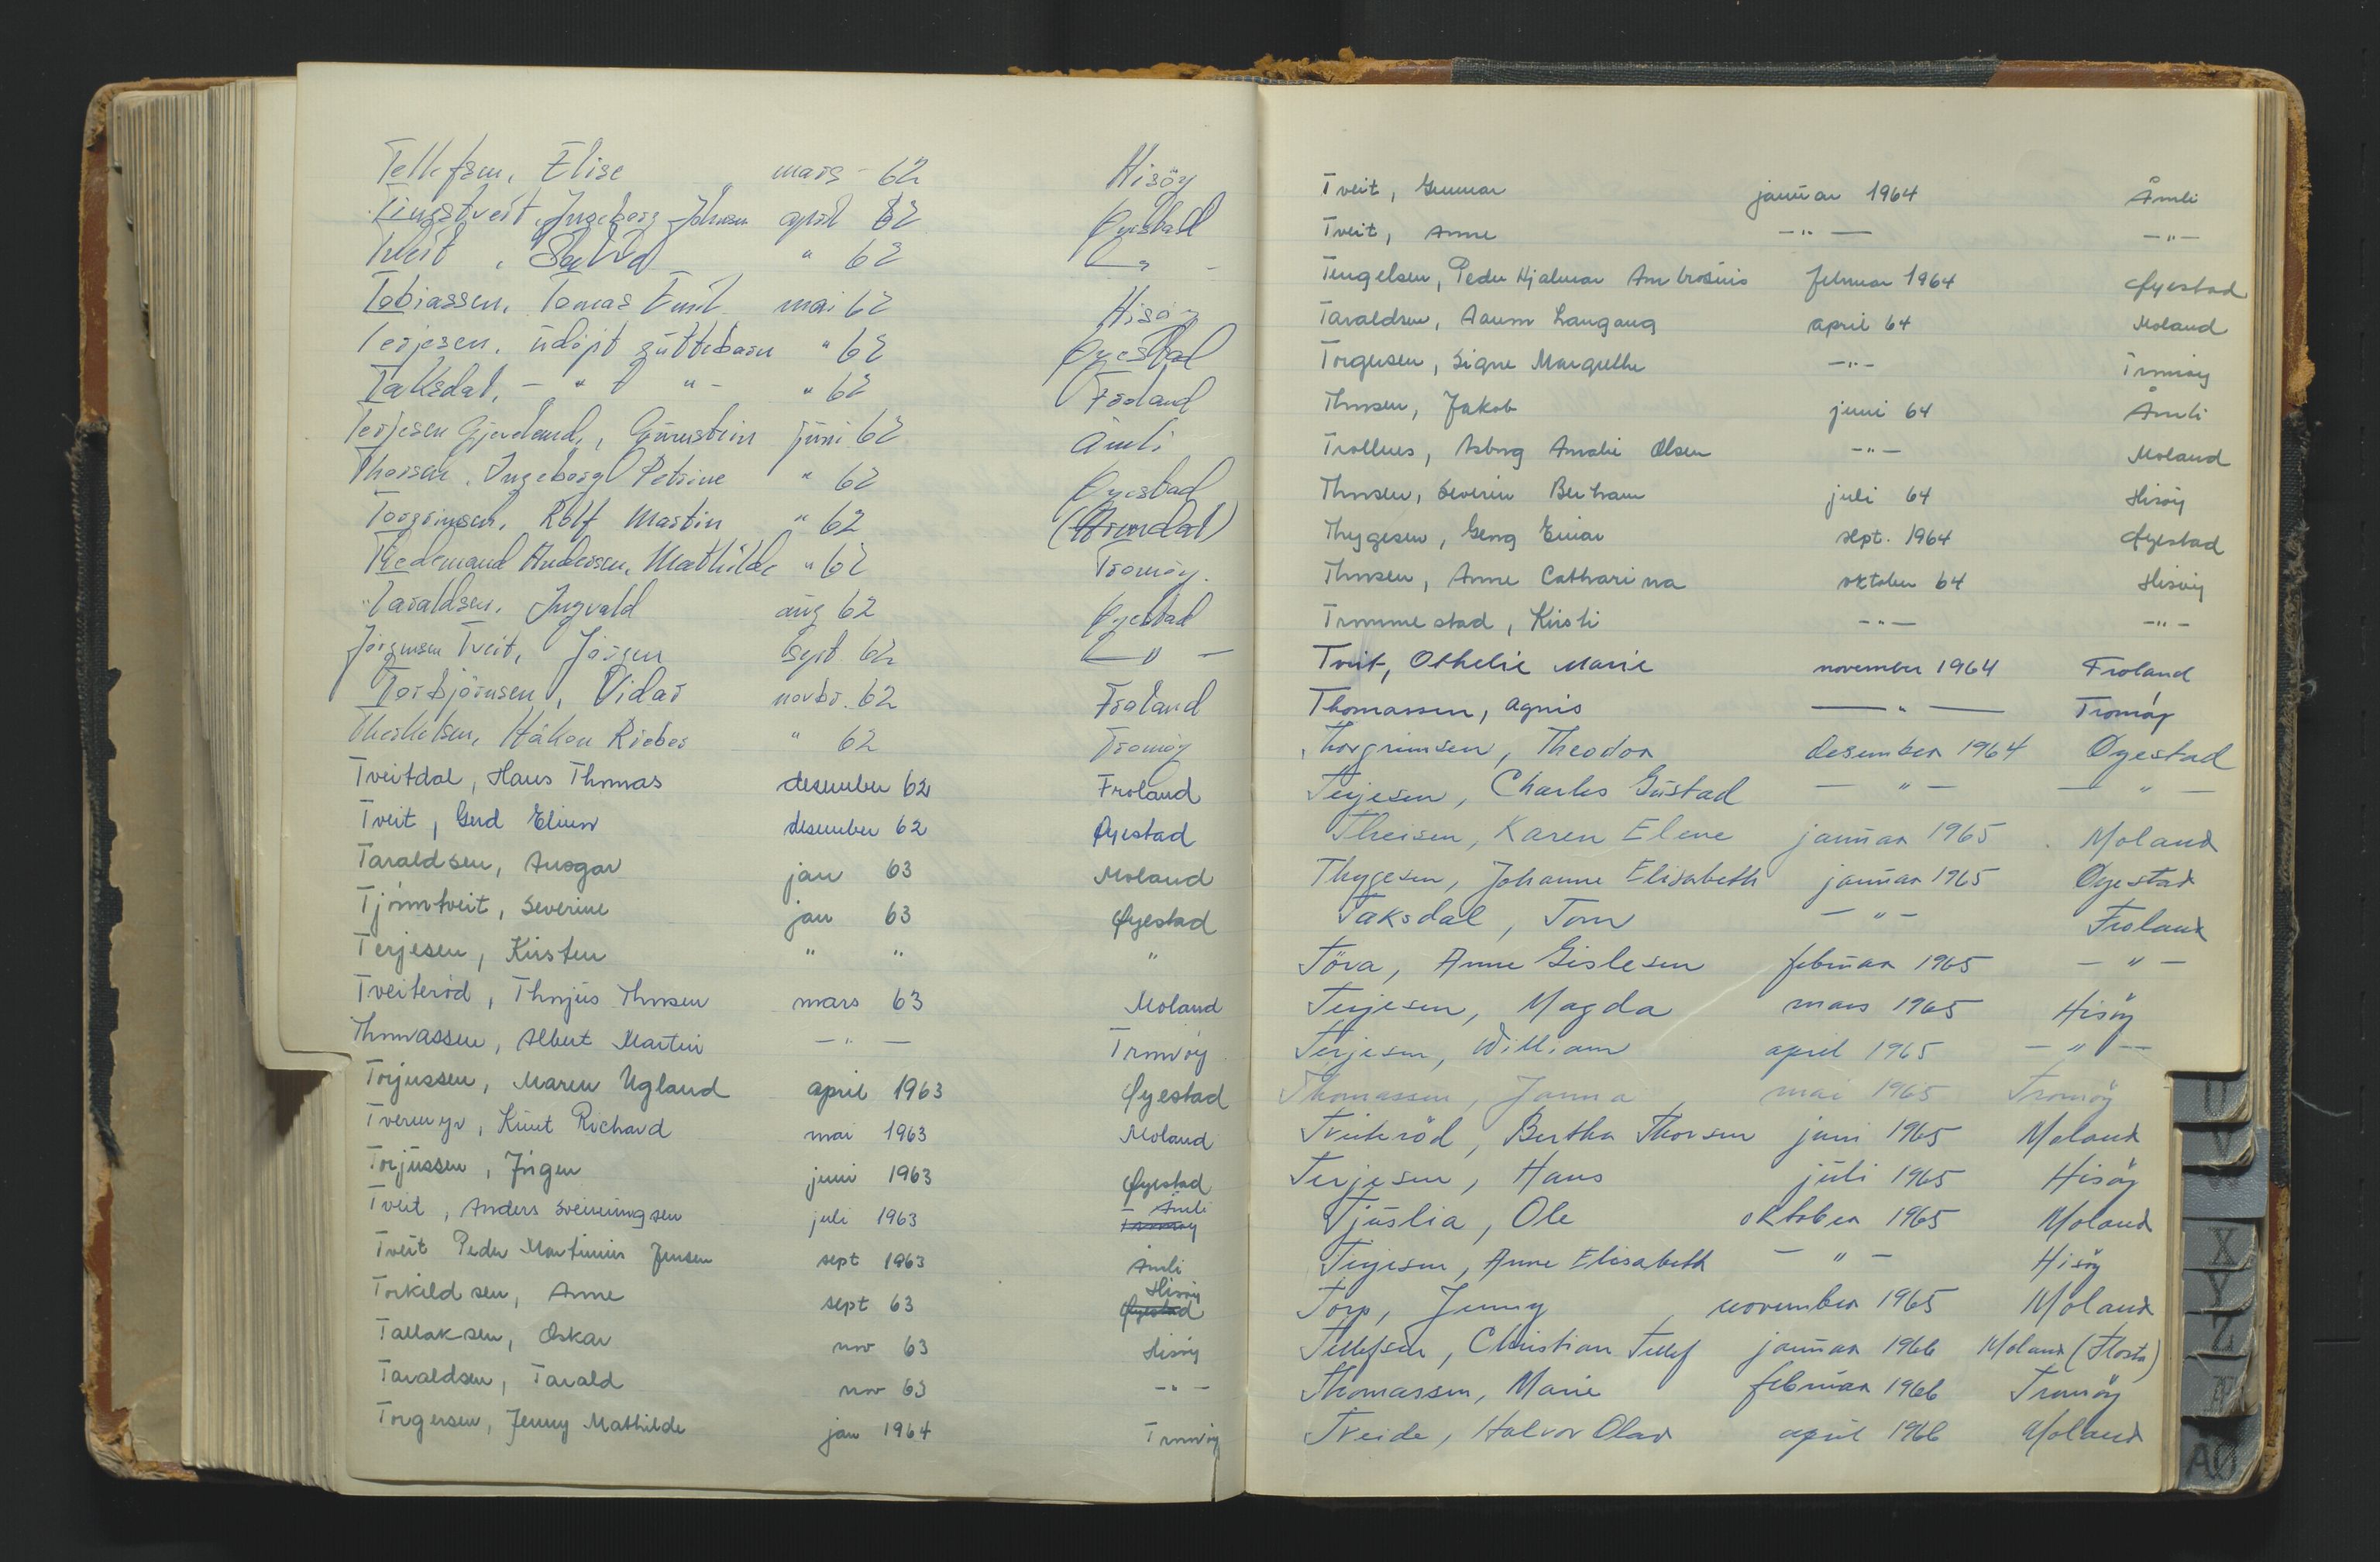 Tellefsen, Elise mars - 62 Hisöy
Tingstveit, Ingeborg Johnsen april 62 Öyestad
Tveit, " 62 — " —
Tobiassen, Tomas Emil mai 62 Hisöy
Terjesen, udöpt guttebarn " 62 Öyestad
Taksdal, - " " - " 62 Froland
Terjesen Gjerdland, Gunnstein juni 62 Åmli
Thorsen, Ingeborg Petrine " 62 Öyestad
Torgrimsen, Rolf Martin " 62 (Arendal)
Tiedemand Andersen, Mathilde " 62 Tromöy.
Taraldsen, Ingvald aug 62 Öyestad
Jörgensen Tveit, Jörgen Sept. 62 — " —
Torbjörnsen, Vidar novbr. 62 Froland
Therkelsen, Håkon Rieber " 62 Tromöy
Tveitdal, Hans Thomas desember 62 Froland
Tveit, Gerd desember 62 Øyestad
Taraldsen, Ansgar jan 63 Moland
Tjömtveit, Severine jan 63 Øyestad
Terjesen, Kirsten " " "
Tveiteröd, Thorjus Thorsen mars 63 Moland
Thomassen, Albert Martin — " — Tromöy
Torjussen, Maren Ugland april 1963 Øyestad
Tvermyr, Knut Richard mai 1963 Moland
Torjussen, Jörgen juni 1963 Øyestad
Tveit, Anders Sveinungsen juli 1963 Åmli
Tromøy
Tveit Peder Martinius Jensen sept 1963 Åmli
Torkildsen, Anne sept 63 Hisöy
Øyestad
Tallaksen, Oskar nov 63 Hisöy
Taraldsen, Tarald nov 63 - " -
Torgersen, Jenny Mathilde jan 1964 Tromöy
Tveit, Gunnar januar 1964 Åmli
Tveit, Anne - " — — " —
Tengelsen, Peder Hjalmar Ambrosius februar 1964 Øyestad
Taraldsen, Langang april 64 Moland
Torgersen, Signe Margrethe — " — Tromöy
Thorsen, Jakob juni 64 Åmli
Trollnes, Asborg Amalie Olsen — " — Moland
Thorsen, Severin juli 64 Hisöy
Thygesen, Georg Einar sept. 1964 Øyestad
Thorsen, Anne Catharina oktober 64 Hisöy
Trommestad, Kirsti — " — - " -
Tveit, Othelie Marie november 1964 Froland
Thomassen, Agnes — " — Tromöy
Thorgrimsen, Theodor desember 1964 Øyestad
Terjesen, Charles Gustad — " — — " —
Theisen, Karen Elene januar 1965 Moland
Thygesen, Johanne Elisabeth januar 1965 Øyestad
Taksdal, Tom — " — Froland
Töra, Anne Gislesen februar 1965 — " —
Terjesen, Magda mars 1965 Hisöy
Terjesen, William april 1965 — " —
Thomassen, Janna mai 1965 Tromöy
Tveiteröd, Bertha Thorsen juni 1965 Moland
Terjesen, Hans juli 1965 Hisöy
Tjuslia, Ole oktober 1965 Moland
Terjesen, Anne Elisabeth — " — Hisöy
Torp, Jenny november 1965 Moland
Tellefsen, Christian Tellef januar 1966 Moland (Flosta)
Thomassen, Marie februar 1966 Tromöy
Tveide, Halvor Olav april 1966 Moland
U
V
X
Y
Z
Æ
AØ